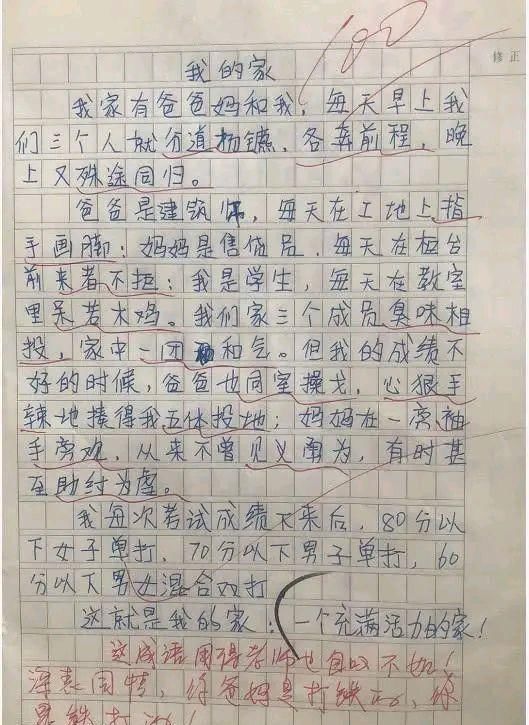 100
修正
我的家
我家有爸爸妈和我，每天早上我
们三个人就分道杨镳，各奔前程，晚
上又殊途同归。
爸爸是建筑师，每天在工地上指
手画脚；妈妈是售货员，每天在柜台
前来者不拒；我是学生，每天在教室
里呆若木鸡。我们家三个成员臭味相
投，家中一团和气。但我的成绩不
好的时候，爸爸也同室操戈，心狠手
辣地揍得我五体投地；妈妈在一旁袖
手旁观，从来不曾见义勇为，有时甚
至助纣为虐。
我每次考试成绩下来后，80分以
下女子单打，70分以下男子单打，60
分以下男女混合双打
这就是我的家：一个充满活力的家！
这成语用得老师也自叹不如！
深表同情，你爸妈是打铁的，你
是铁打的！